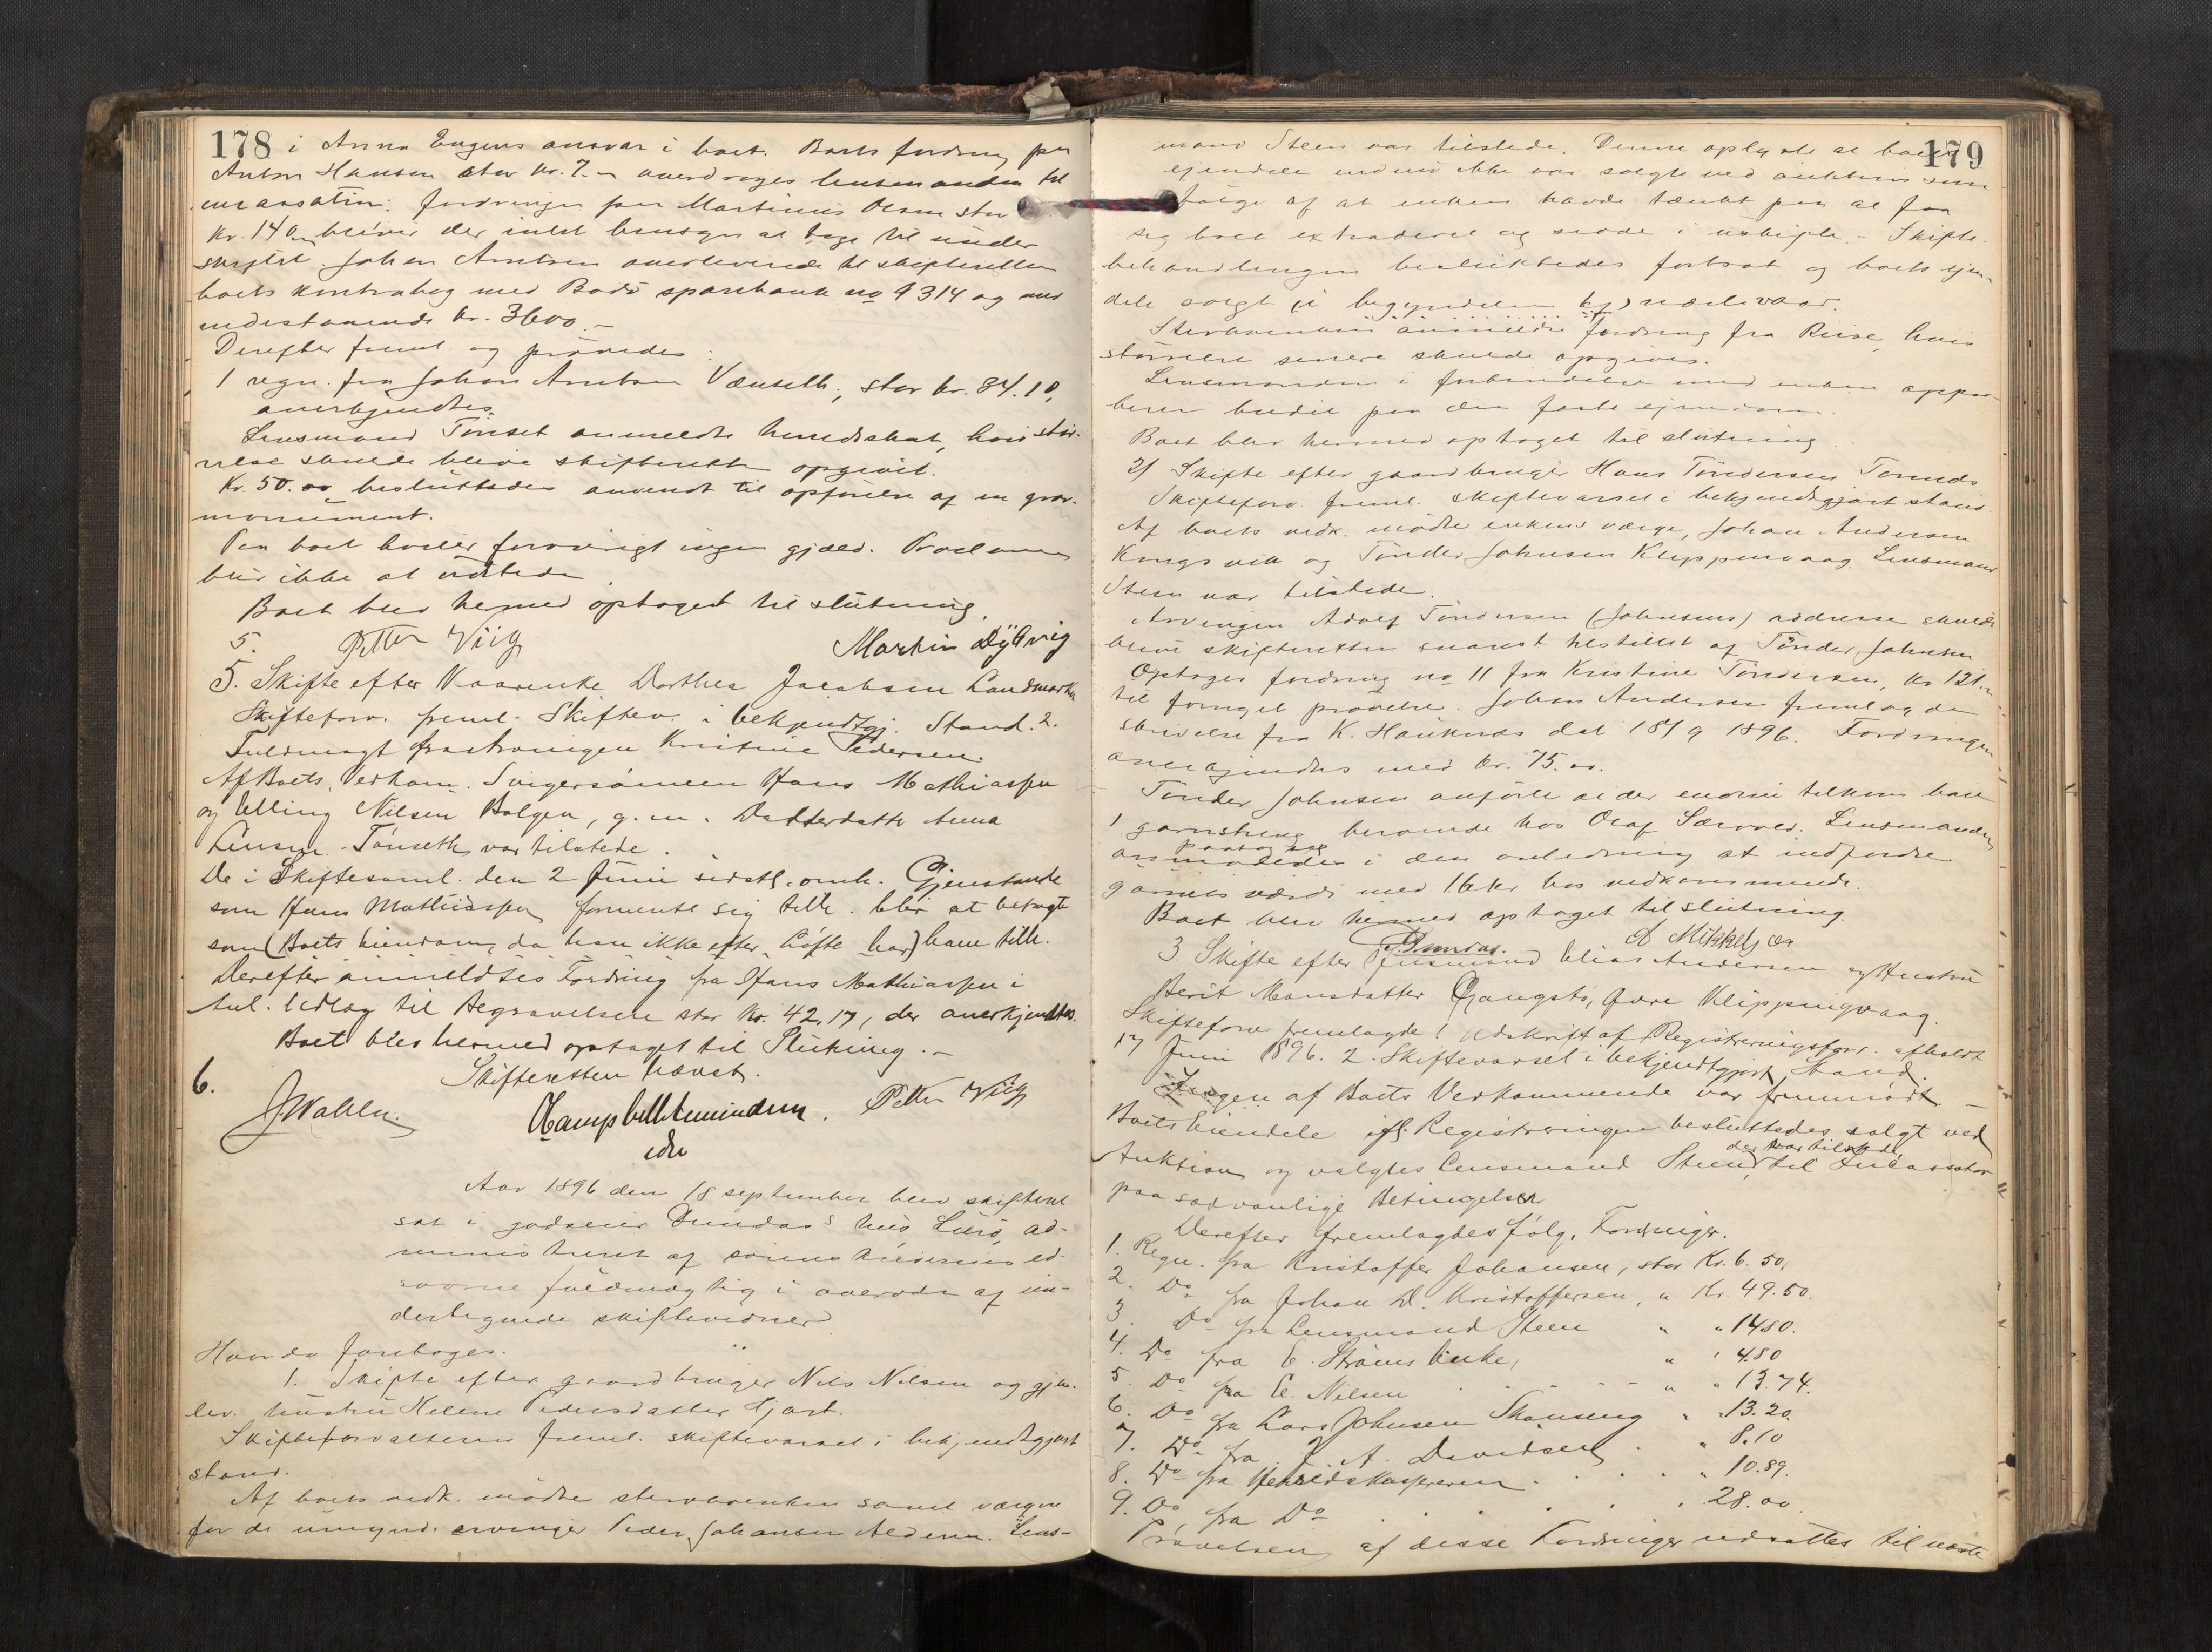 178
i Anna Eugens ansvar i boet. Boets fordring paa
Anton Hansen stor kr. 7. overdrages lensmanden til
incassation. fordringen paa Martinus Olsen stor
kr. 140 bliver der intet hensyn at tage til under
skiftet. Johan Arntsen overleverede til skifteretten
boets kontrabog med Bodö sparebank no 9314 og med
indestaaende kr. 3600.-
Derefter freml. og prövedes:
1 regn. fra Johan Arntsen Vænseth, stor kr. 84.10,
anerkjendtes.
Lensmand Tönset anmeldte herredskat, hvis stör-
relse skulde blive skifteretten opgivet.
Kr. 50.00 besluttedes anvendt til opförelse af en grav-
monument.
Paa boet hviler forövrigt ingen gjæld. Proclama
blir ikke at udstede.
Boet blev hermed optaget til slutning.
5. Petter Viig Martin Dybvig
5. Skifte efter Kaarenke Dorthea Jacobsen Landmark
Skifteforv. freml. Skiftev. i bekjendtgj. Stand. 2.
Fuldmagt fra arvingen Kristine Pedersen.
Af Boets Vedkom. Svigersönnen Hans Mathiassen
og Elling Nilsen Bolgen, g. m. Datterdatter Anna
Lensm. Tönseth var tilstede.
De i Skiftesaml. den 2 Juni sidstl. omh. Gjenstande
som Hans Mathiassen formente sig tilh. blir at betragte
som (Boets Eiendom, da han ikke efter Löfte har) ham tilh.
Derefter anmeldtes Fordring fra Hans Mathiassen i
Anl. Udlæg til Begravelsen stor Kr. 42,17, der anerkjendtes.
Boet blev hermed optaget til Slutning.-
Skifteretten hævet.
6.
J. Wahlen. Petter Viig
edv
Aar 1896 den 18 september blev skifteret
sat i godseier Dundas's hus Lurö, ad-
ministreret af sorenskriverens ed-
svorne fuldmægtig i overvær af un-
dertegnede skiftevidner
Hvor da foretoges.
1. Skifte efter gaardbruger Nils Nilsen og gjen-
lev. hustru Helene Pedersdatter Hjart.
Skifteforvalteren freml. skiftevarsel i bekjendtgjort
stand.
Af boets vedk. mödte stervboenken samt værgen
for de umynd. arvinger Peder Johansen Aldern. Lens-
179
mand Steen var tilstede. Denne oplyste at boets
eiendele endnu ikke var solgte ved auktion som
fölge af at enken havde tænkt paa at faa
sig boet extraderet og sidde i uskifte.- Skifte-
behandlingen besluttedes fortsat og boets ejen-
dele solgt i begyndelsen af næste vaar.
Stervboenken anmeldte fordring fra Ruse, hvis
störrelse senere skulde opgives.
Lensmanden i forbindelse med enken oppe-
berer budet paa den faste ejendom.
Boet blev hermed optaget til slutning.
2) Skifte efter gaardbruger Hans Töndersen Tonnes
Skifteforv. freml. skiftevarsel i bekjendtgjort stand.
Af boets vedk. mödte enkens værge, Johan Andersen
Kongsvik og Tönder Johnsen Klippenvaag. Lensmand
Steen var tilstede.
Arvingen Adolf Töndersen (Johnsens) addresse skulde
blive skifteretten snarest tilstillet af Tönder Johnsen
Optages fordring no 11 fra Kristine Töndersen, kr 121.
til fornyet prövelse. Johan Andersen fremlagde
skrivelse fra K. Hauknæs dat 18/9 1896. Fordringen
anerkjendtes med kr. 75.00.
Tönder Johnsen anförte at der endnu tilkom boet
1 garnstreng beroende hos Olaf Særvold. Lensmanden
paatog sig
anmodedes i den anledning at indfordre
garnets værdi med 16 kr hos vedkommende.
Boet blev hermed optaget til slutning.
Dundas. A Mikkelsen
3 Skifte efter Husmand Elias Andersen og Hustru
Berit Monsdatter Gjongstö, Övre Klippingvaag.
Skifteforv fremlagde 1 Udskrift af Registreringsforr. afholdt
17 Juni 1896. 2. Skiftevarsel i bekjendtgjort Stand.
Ingen af Boets Vedkommende var fremmödt. -
Boets Eiendele ifl. Registreringen besluttedes solgt ved
der var tilstede,
Auktion og valgtes Lensmand Steen, til Incassator
paa sædvanlige Betingelser
Derefter fremlagdes fölg. Fordringer.
1. Regn. fra Kristoffer Johansen, stor Kr. 6.50.
2. Do fra Johan D. Kristoffersen, " Kr. 49.50.
3. Do fra Lensmand Steen " " 14.80.
4. Do fra E. Ströms Enke, " " 4.80
5. Do fra E. Nilsen " " 13.74.
6. Do fra Lars Johnsen Skauseng " " 13.20.
7. Do fra J. A. Davidsen " 8.10
8. Do fra Herredskassereren " 10.89.
9. Do, fra Do 28.00.
Prövelsen af disse Fordringer udsattes til næste